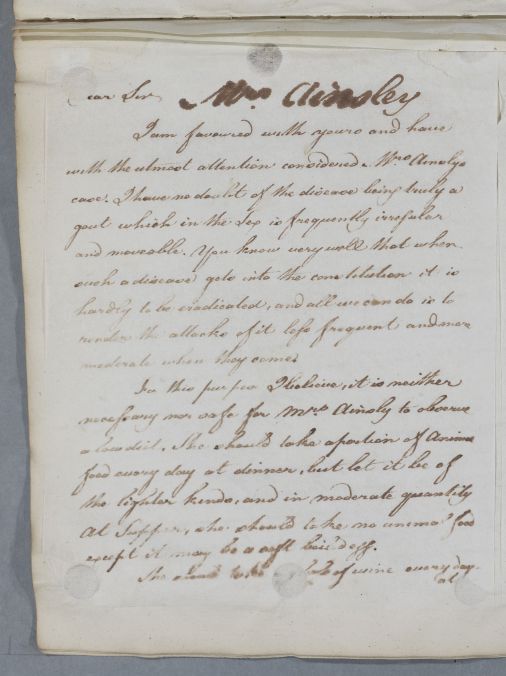 ear Sir Mrs Ainsley
I am favoured with yours and have
with the utmost attention considered Mrs Ainslys
case. I have no doubt of the disease being truly a
gout which in the Sex is frequently irregular
and moveable. You know very well that when
such a disease gets into the constitution it is
hardly to be eradicated, and all we can do is to
render the attacks of it less frequent and more
moderate when they come.
For this purpose I believe, it is neither
necessary nor safe for Mrs Ainsly to observe
a low diet. She should take a portion of Anima
food every day at dinner, but let it be of
the lighter kinds, and in moderate quantity
At Supper, she should take no animal food
except it may be a soft boil'd egg.
She should of wine every day
at